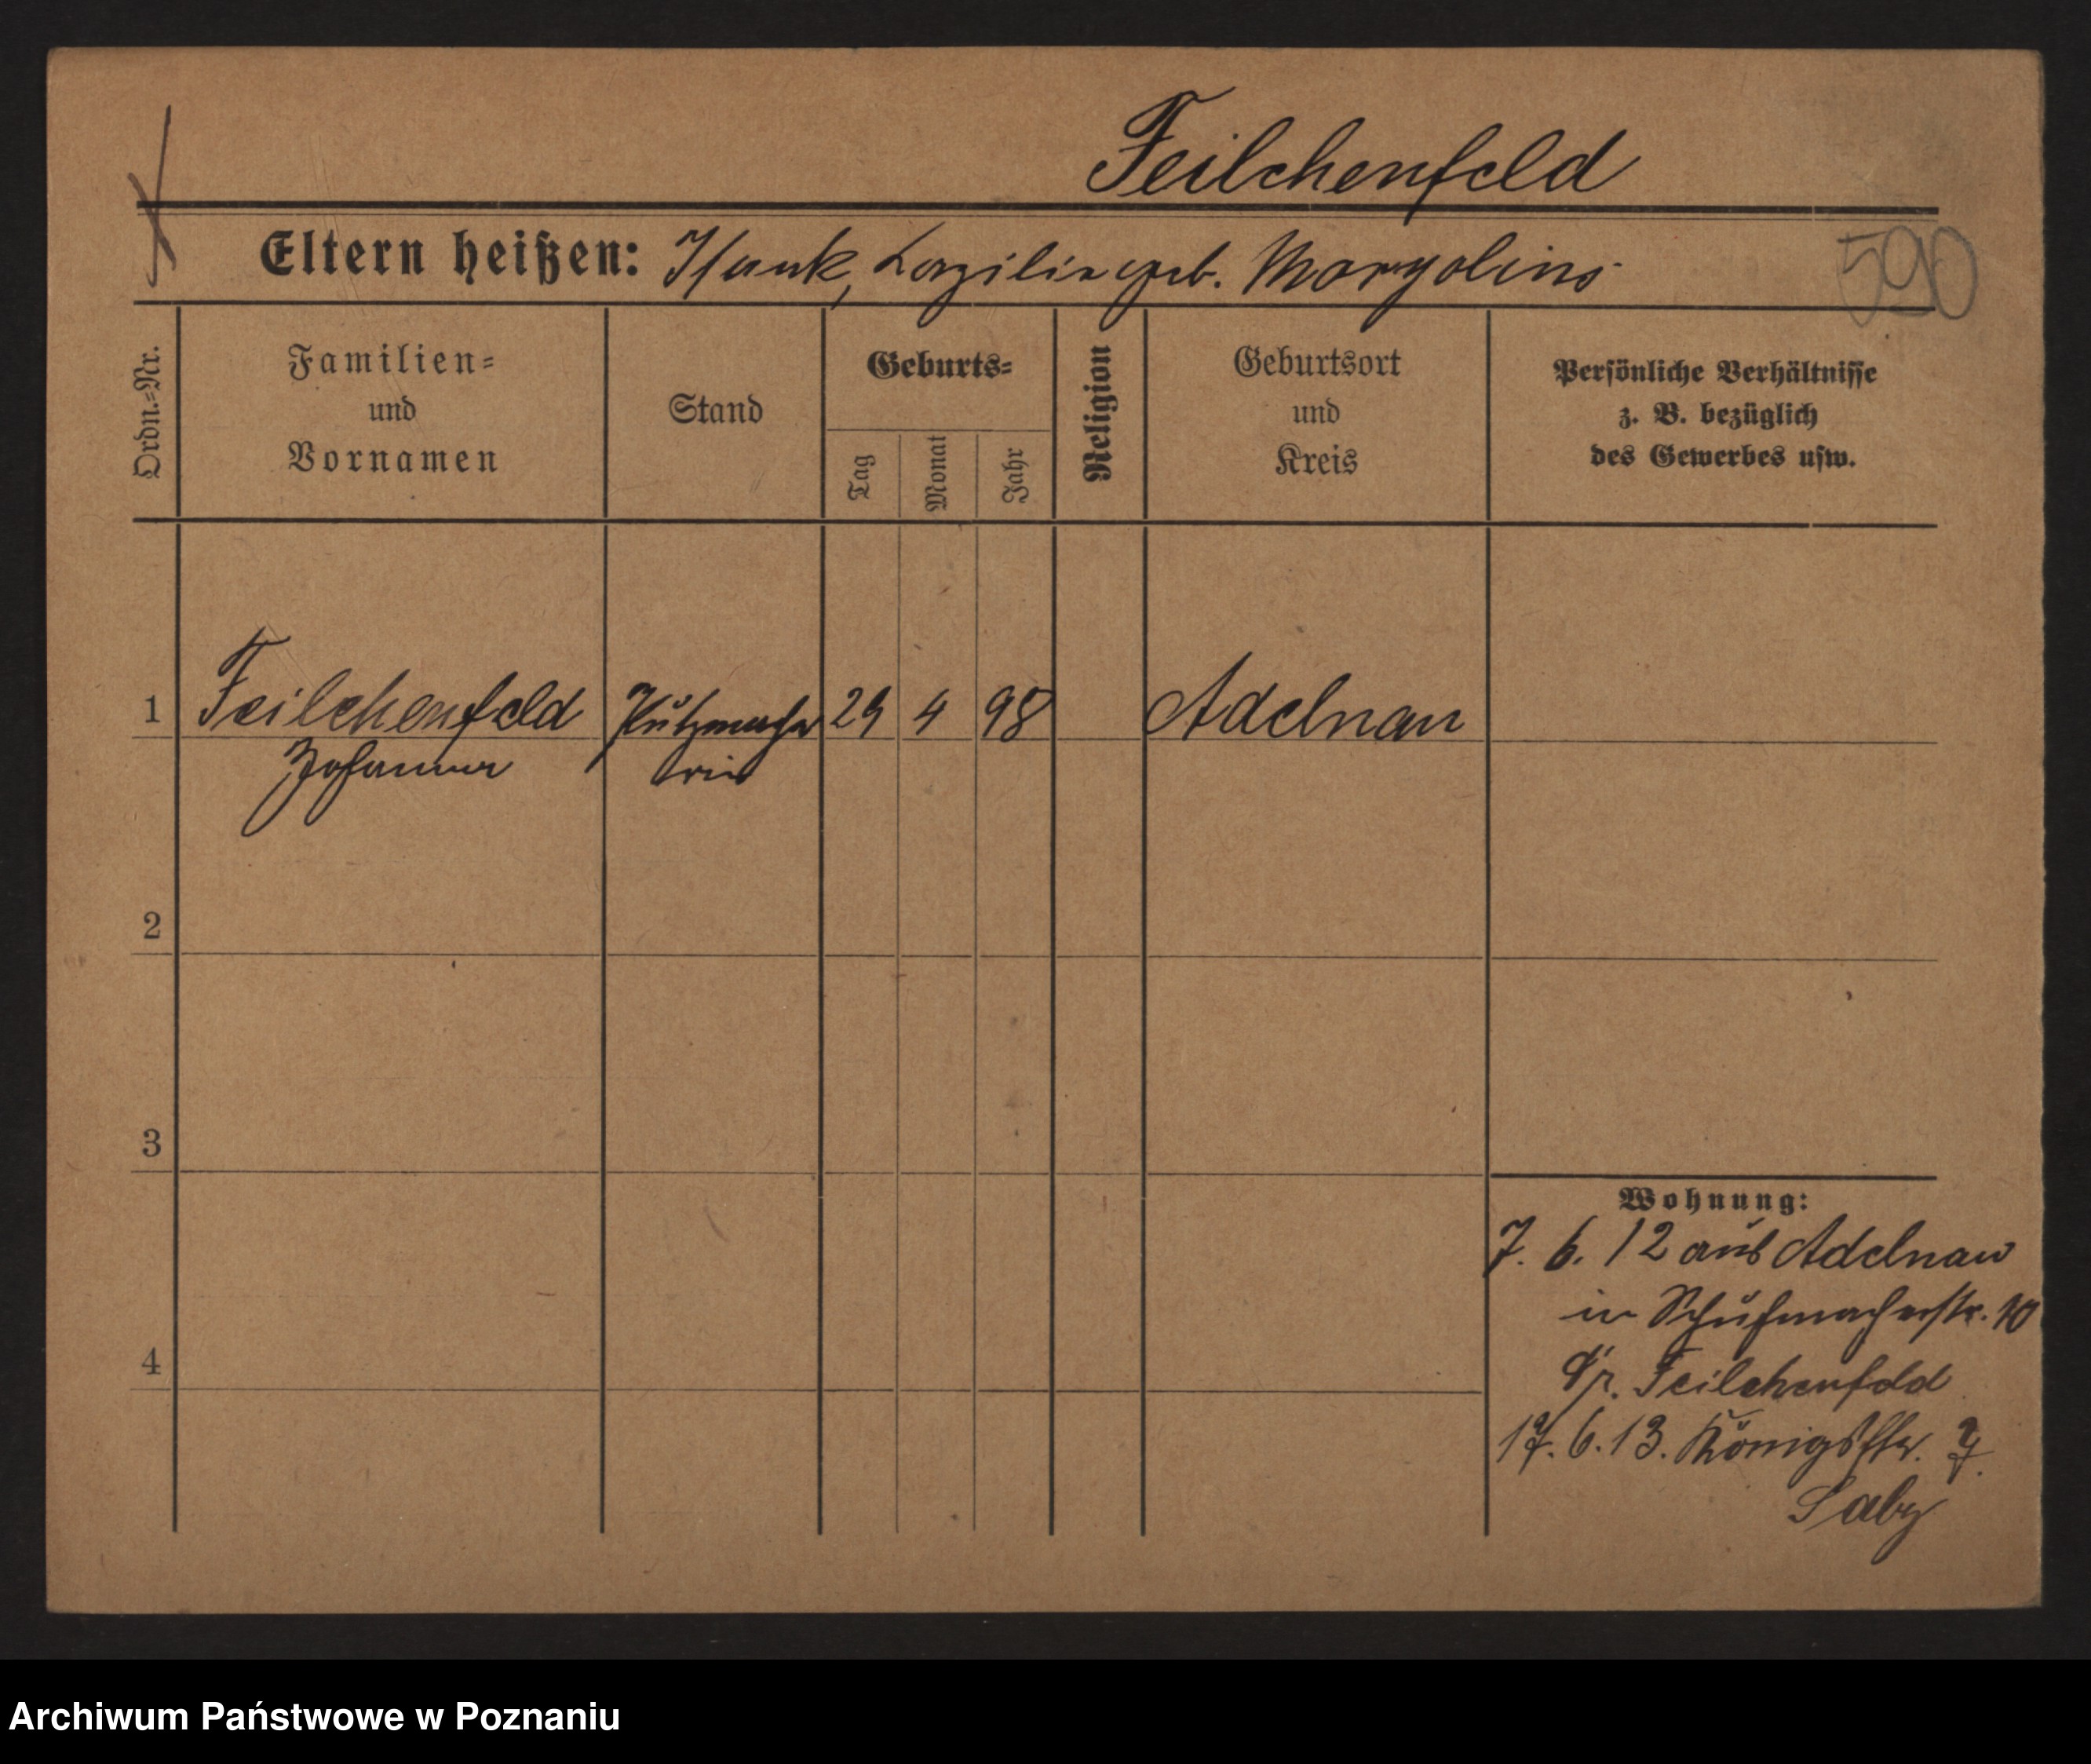 Feilchenfeld
Eltern heißen: Isaak, Cäzilie geb. Margolius
590
Ordn.-Nr.
Familien-
und
Vornamen
Stand
Geburts-
Tag
Monat
Jahr
Religion
Geburtsort
und
Kreis
Persönliche Verhältnisse
z. B. bezüglich
des Gewerbes usw.
1 Feilchenfeld Putzmache 29 4 98 Adelnau
Johanna rin
2
3
4
Wohnung:
7. 6. 12 aus Adelnau
in Schuhmacherstr. 10
Feilchenfeld
17. 6. 13. Königstr. 7.
Archiwum Państwowe w Poznaniu